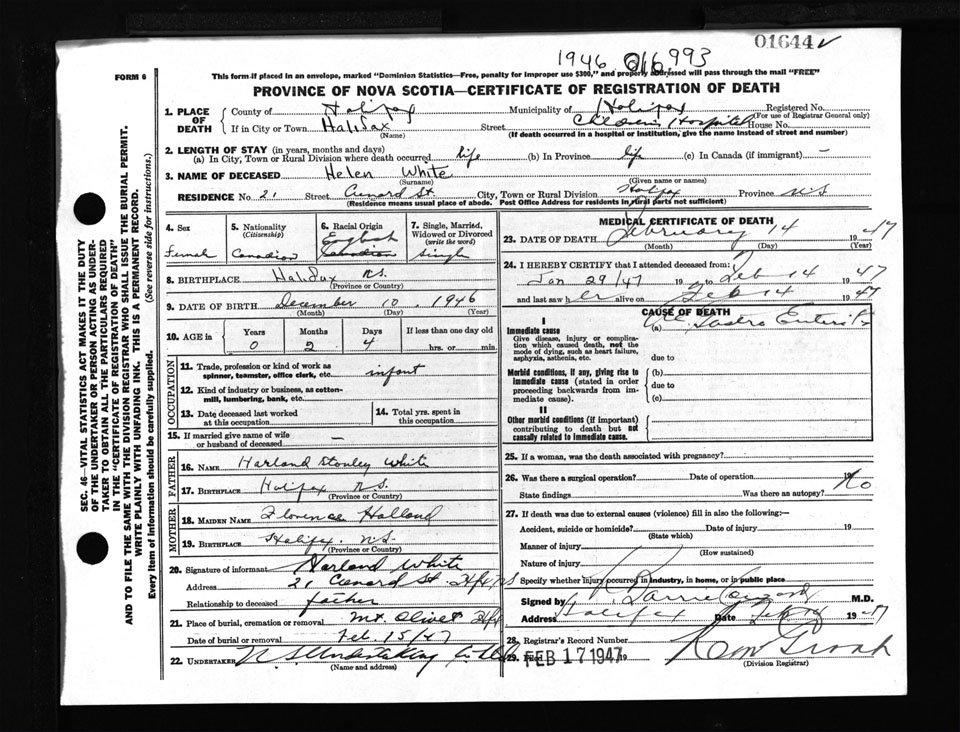 01644
1946 016,993
FORM 6
This form if placed in an envelope, marked "Dominion Statistics—Free, penalty for improper use $300," and properly addressed will pass through the mail "FREE"
PROVINCE OF NOVA SCOTIA—CERTIFICATE OF REGISTRATION OF DEATH
1. PLACE OF DEATH
County of Halifax Municipality of Halifax Registered No.
(For use of Registrar General only)
If in City or Town Halifax Street Children's Hospital House No.
(Name) (If death occurred in a hospital or institution, give the name instead of street and number)
2. LENGTH OF STAY (in years, months and days)
(a) In City, Town or Rural Division where death occurred life (b) In Province life (c) In Canada (if immigrant) —
3. NAME OF DECEASED Helen White
(Surname) (Given name or names)
RESIDENCE No 21 Street Cunard St. City, Town or Rural Division Halifax Province N.S.
(Residence means usual place of abode. Post Office Address for residents in rural parts not sufficient)
4. Sex
Female
5. Nationality
(Citizenship)
Canadian
6. Racial Origin
English
Canadian
7. Single, Married, Widowed or Divorced
(write the word)
single
8. BIRTHPLACE Halifax N.S.
(Province or Country)
9. DATE OF BIRTH December 10, 1946
(Month) (Day) (Year)
10. AGE in Years Months Days If less than one day old
0 2 4 hrs. or min.
OCCUPATION
11. Trade, profession or kind of work as
spinner, teamster, office clerk, etc. infant
12. Kind of industry or business, as cotton-
mill, lumbering, bank, etc.
13. Date deceased last worked
at this occupation
14. Total yrs. spent in
this occupation
15. If married give name of wife
or husband of deceased —
FATHER
16. NAME Harland Stanley White
17. BIRTHPLACE Halifax N.S.
(Province or Country)
MOTHER
18. MAIDEN NAME Florence Holland
19. BIRTHPLACE Halifax N.S.
(Province or Country)
20. Signature of informant Harland White
Address 21 Cunard St. Hfx NS
Relationship to deceased father
21. Place of burial, cremation or removal Mt. Olivet Hfx
Date of burial or removal Feb. 15/47
22. UNDERTAKER N S Undertaking Co
(Name and address)
MEDICAL CERTIFICATE OF DEATH
23. DATE OF DEATH February 14 1947
(Month) (Day) (Year)
24. I HEREBY CERTIFY that I attended deceased from:
Jan 29/47 19 to Feb 14 1947
and last saw her alive on Feb 14 1947
CAUSE OF DEATH
I
Immediate cause (a) Gastro Enteritis
Give disease, injury or complica-
tion which caused death, not the
mode of dying, such as heart failure,
asphyxia, asthenia, etc. due to
Morbid conditions, if any, giving rise to (b)
immediate cause (stated in order due to
proceeding backwards from im-
mediate cause). (c)
II
Other morbid conditions (if important)
contributing to death but not
causally related to immediate cause.
25. If a woman, was the death associated with pregnancy?
26. Was there a surgical operation? Date of operation 19
State findings Was there an autopsy? No
27. If death was due to external causes (violence) fill in also the following:—
Accident, suicide or homicide? Date of injury 19
(State which)
Manner of injury
(How sustained)
Nature of injury
Specify whether injury occurred in industry, in home, or in public place
Signed by M.D.
Address Halifax Date Feb 1947
28. Registrar's Record Number
29. Filed FEB 17 1947 19
(Division Registrar)
SEC. 46—VITAL STATISTICS ACT MAKES IT THE DUTY
OF THE UNDERTAKER OR PERSON ACTING AS UNDER-
TAKER TO OBTAIN ALL THE PARTICULARS REQUIRED
IN THE "CERTIFICATE OF REGISTRATION OF DEATH"
AND TO FILE THE SAME WITH THE DIVISION REGISTRAR WHO SHALL ISSUE THE BURIAL PERMIT.
WRITE PLAINLY WITH UNFADING INK. THIS IS A PERMANENT RECORD.
Every item of information should be carefully supplied. (See reverse side for instructions.)